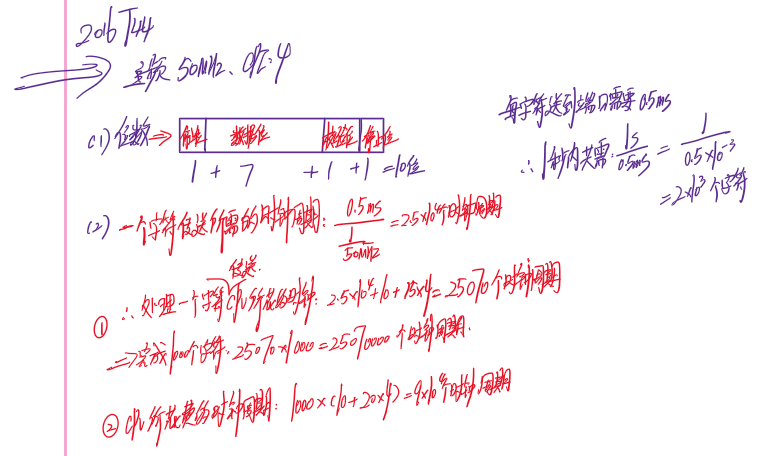 2016 T44
主频 50MHz、CPI:4
每字符送到端口需要 0.5ms
(1) 位数 ⇒ 起始 数据位 校验位 停止位
1 + 7 + 1 + 1 = 10位
∴ 1秒内共需: 1s/0.5ms = 1/0.5×10⁻³
= 2×10³ 个字符
(2) 一个字符传送所需的时钟周期: 0.5ms/(1/50MHz) = 2.5×10⁴个时钟周期
传送.
① ∴ 处理一个字符CPU所花的时钟: 2.5×10⁴+10+15×4=25070个时钟周期
⇒完成1000个字符: 25070×1000=25070000个时钟周期.
② CPU所花费的时钟周期: 1000×(10+20×4)=9×10⁴个时钟周期